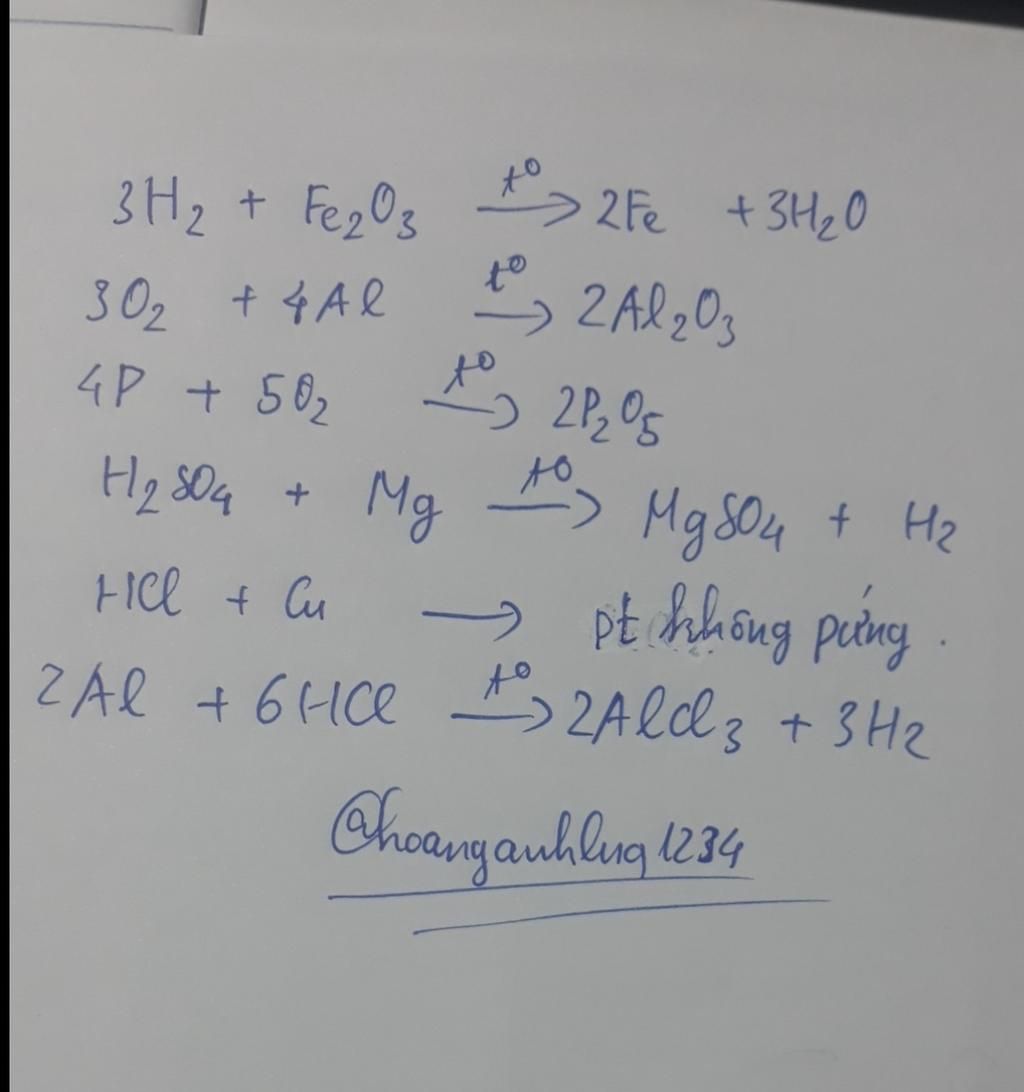 3H₂ + Fe₂O₃ t⁰→ 2Fe + 3H₂O
3O₂ + 4Al t⁰→ 2Al₂O₃
4P + 5O₂ t⁰→ 2P₂O₅
H₂SO₄ + Mg t⁰→ MgSO₄ + H₂
HCl + Cu → pt không pứng.
2Al + 6HCl t⁰→ 2AlCl₃ + 3H₂